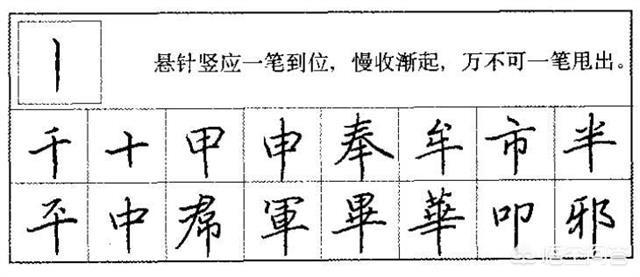 丨
悬针竖应一笔到位，慢收渐起，万不可一笔甩出。
千 十 甲 申 奉 牟 市 半
平 中 軍 畢 華 叩 邪
悟空问答